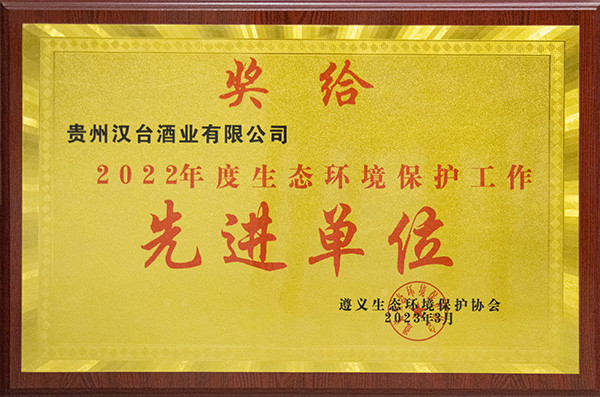 奖给
贵州汉台酒业有限公司
2022年度生态环境保护工作
先进单位
遵义生态环境保护协会
2023年3月